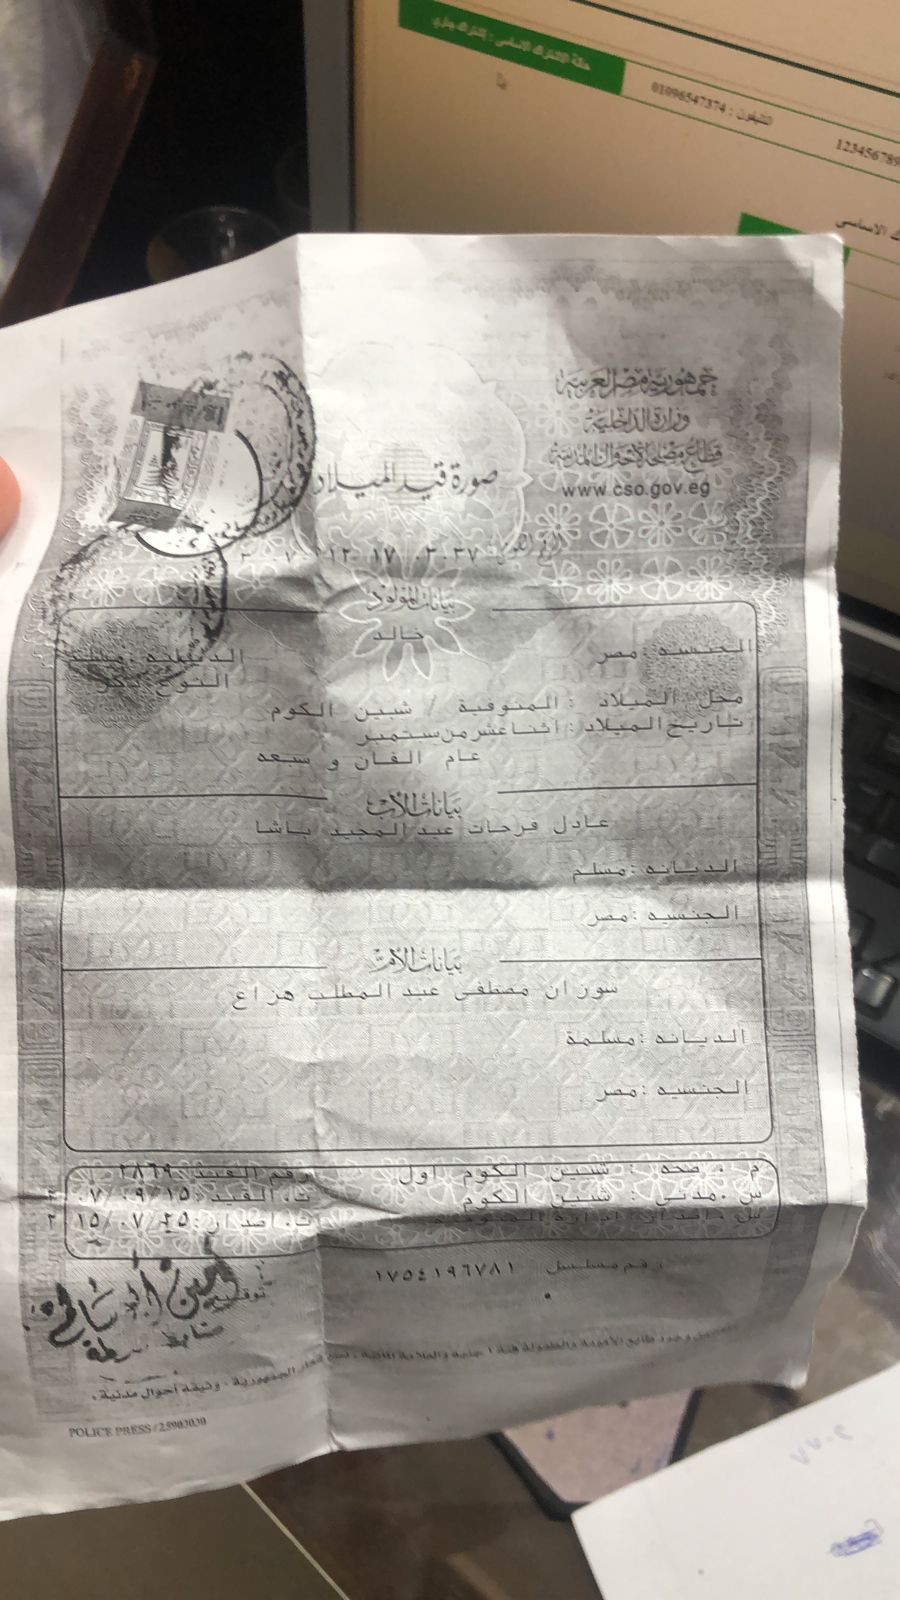 حالة الاشتراك الاساسى : إشتراك جارى
التليفون : 01096547374
123456789
ك الاساسى
جمهورية مصر العربية
وزارة الداخلية
قطاع مصلحة الأحوال المدنية
www.cso.gov.eg
صورة قيد الميلاد
بيانات المولود
خالد
الجنسيه :مصر
النوع :ذكر
محل الميلاد : المنوفية / شبين الكوم
تاريخ الميلاد : اثنا عشر من سبتمبر
عام الفان و سبعه
بيانات الأب
عادل فرحات عبد المجيد باشا
الديانه :مسلم
الجنسيه :مصر
بيانات الأم
سوزان مصطفى عبد المطلب هزاع
الديانه :مسلمة
الجنسيه :مصر
م . صحه : شبين الكوم اول رقم القيد :٢٨٦٩
س . مدنى : شبين الكوم ت. القيد :٠٧/٠٩/١٥ ٢
ت. اصدار :١٥/٠٧/٢٥ ٢
رقم مسلسل ١٧٥٤١٩٦٧٨١
توقيع
وثيقة أحوال مدنية .
POLICE PRESS / 25903030